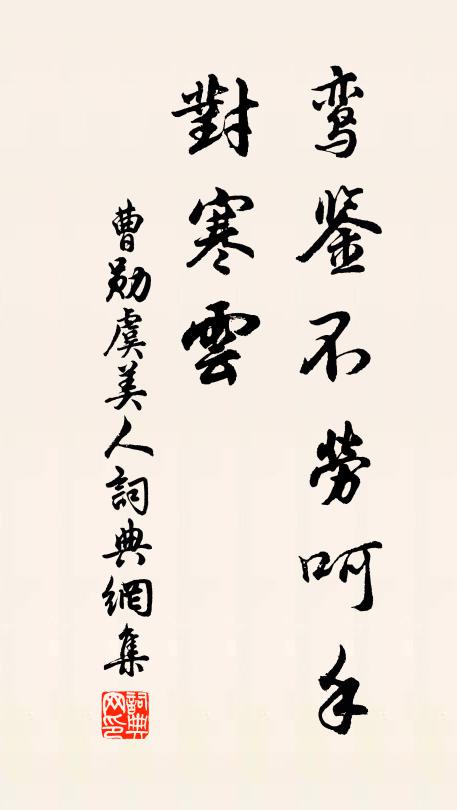 鸾鉴不勞呵手
對寒雲
曹勛虞美人詞典網集
詞典
网印